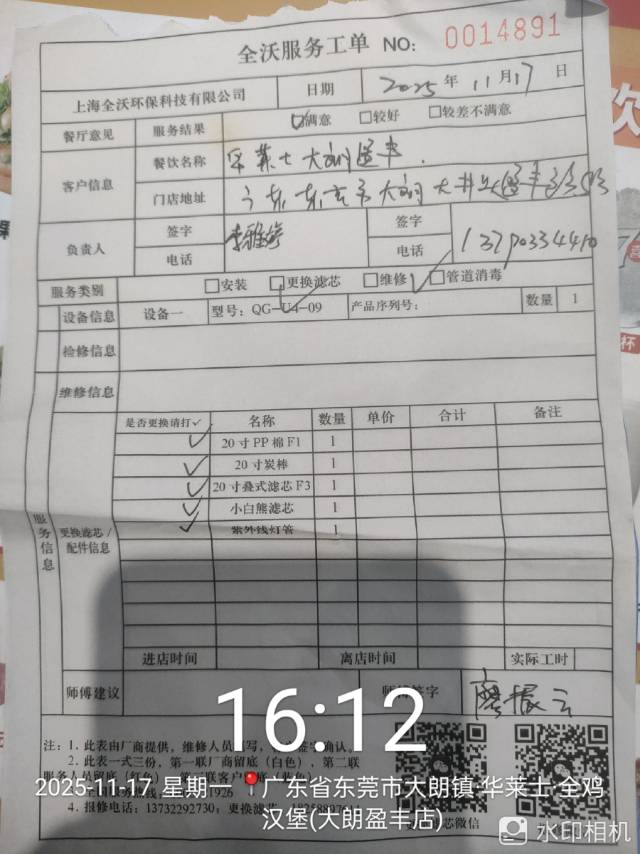 全沃服务工单 NO: 0014891
上海全沃环保科技有限公司 日期 2025年 11月17日
餐厅意见 服务结果 ☑满意 □较好 □较差不满意
客户信息 餐饮名称 华莱士大朗盈丰
门店地址 广东东莞市大朗
负责人 签字 签字
电话 电话
服务类别 □安装 □更换滤芯 □维修 □管道消毒
设备信息 设备一 型号: QG-U4-09 产品序列号: 数量 1
检修信息
维修信息
服务信息
更换滤芯/配件信息
是否更换请打✓ 名称 数量 单价 合计 备注
✓ 20寸PP棉F1 1
✓ 20寸炭棒 1
✓ 20寸叠式滤芯F3 1
✓ 小白熊滤芯 1
✓ 紫外线灯管 1
进店时间 离店时间 实际工时
师傅建议 签字
16:12
注: 1. 此表由厂商提供, 维修人员 写, 签字确认。
2. 此表一式三份, 第一联厂商留底(白色), 第二联
服务人员留底(红色)
4. 报修电话: 13732292730; 更换滤芯
2025-11-17 星期一 广东省东莞市大朗镇·华莱士·全鸡汉堡(大朗盈丰店)
水印相机